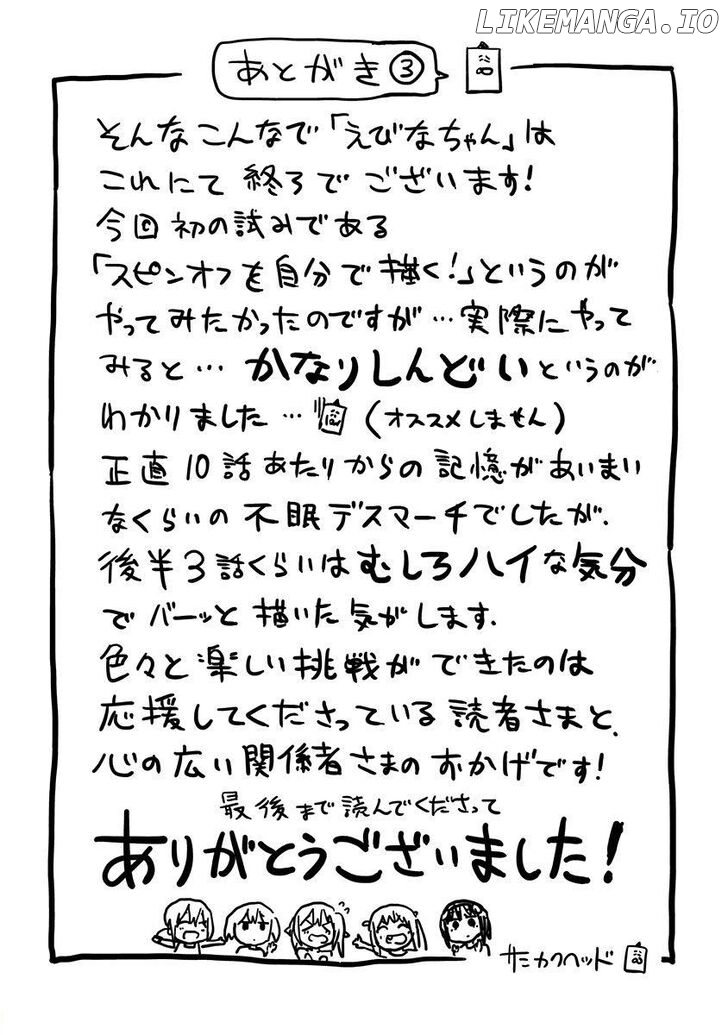 LIKEMANGA.IO
あとがき③
そんなこんなで「えびなちゃん」は
これにて 終了で ございます!
今回 初の試みである
「スピンオフを自分で描く!」というのが
やってみたかったのですが…実際にやって
みると… かなりしんどいというのが
わかりました… (オススメしません)
正直10話あたりからの記憶があいまい
なくらいの 不眠デスマーチでしたが、
後半3話くらいはむしろハイな気分
で バーッと 描いた気がします。
色々と楽しい挑戦ができたのは
応援してくださっている読者さまと、
心の広い関係者さまのおかげです!
最後まで読んでくださって
ありがとうございました!
サンカクヘッド